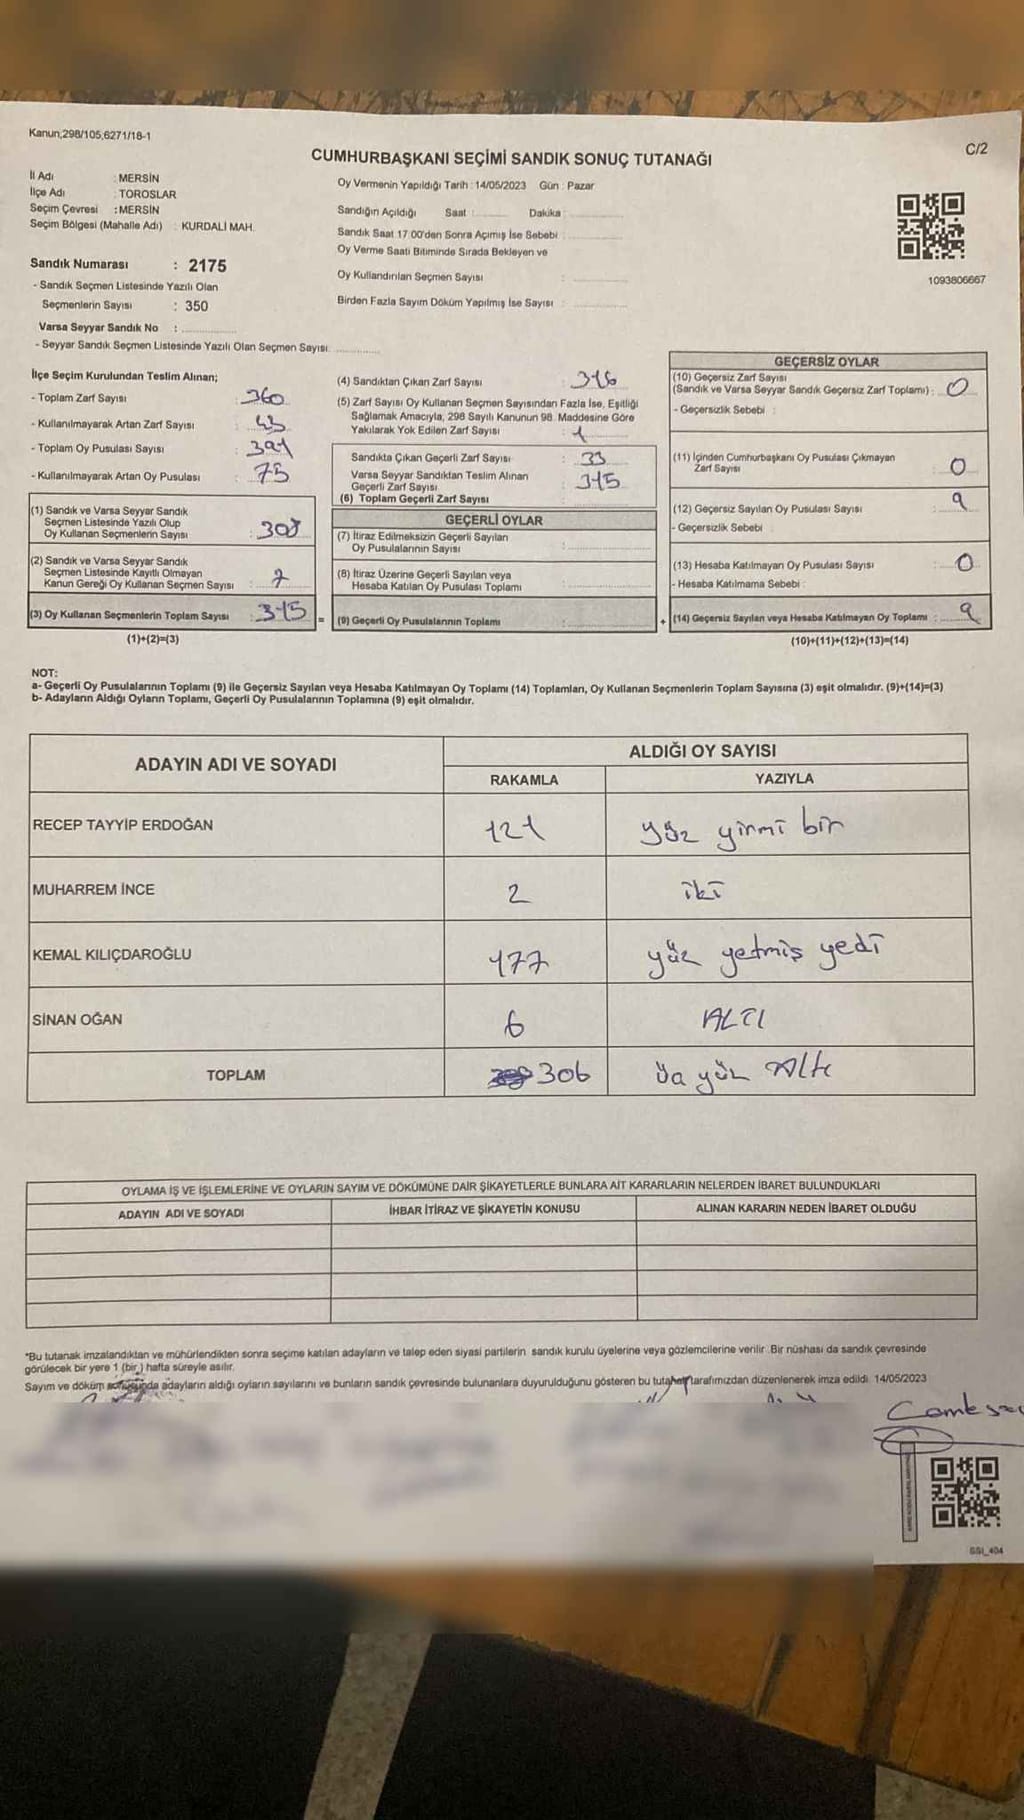 Kanun;298/105,6271/18-1
C/2
CUMHURBAŞKANI SEÇİMİ SANDIK SONUÇ TUTANAĞI
İl Adı : MERSİN
İlçe Adı : TOROSLAR
Seçim Çevresi : MERSİN
Seçim Bölgesi (Mahalle Adı) : KURDALİ MAH.
Sandık Numarası : 2175
- Sandık Seçmen Listesinde Yazılı Olan
Seçmenlerin Sayısı : 350
Varsa Seyyar Sandık No :
- Seyyar Sandık Seçmen Listesinde Yazılı Olan Seçmen Sayısı:
Oy Vermenin Yapıldığı Tarih : 14/05/2023 Gün : Pazar
Sandığın Açıldığı Saat : Dakika :
Sandık Saat 17:00'den Sonra Açımış İse Sebebi :
Oy Verme Saati Bitiminde Sırada Bekleyen ve
Oy Kullandırılan Seçmen Sayısı :
Birden Fazla Sayım Döküm Yapılmış İse Sayısı :
1093806667
İlçe Seçim Kurulundan Teslim Alınan;
- Toplam Zarf Sayısı : 360
- Kullanılmayarak Artan Zarf Sayısı :
- Toplam Oy Pusulası Sayısı : 391
- Kullanılmayarak Artan Oy Pusulası : 75
(1) Sandık ve Varsa Seyyar Sandık
Seçmen Listesinde Yazılı Olup
Oy Kullanan Seçmenlerin Sayısı : 308
(2) Sandık ve Varsa Seyyar Sandık
Seçmen Listesinde Kayıtlı Olmayan
Kanun Gereği Oy Kullanan Seçmen Sayısı : 7
(3) Oy Kullanan Seçmenlerin Toplam Sayısı : 315 =
(1)+(2)=(3)
(4) Sandıktan Çıkan Zarf Sayısı : 316
(5) Zarf Sayısı Oy Kullanan Seçmen Sayısından Fazla İse, Eşitliği
Sağlamak Amacıyla, 298 Sayılı Kanunun 98. Maddesine Göre
Yakılarak Yok Edilen Zarf Sayısı : 1
Sandıkta Çıkan Geçerli Zarf Sayısı : 33
Varsa Seyyar Sandıktan Teslim Alınan
Geçerli Zarf Sayısı : 315
(6) Toplam Geçerli Zarf Sayısı :
GEÇERLİ OYLAR
(7) İtiraz Edilmeksizin Geçerli Sayılan
Oy Pusulalarının Sayısı :
(8) İtiraz Üzerine Geçerli Sayılan veya
Hesaba Katılan Oy Pusulası Toplamı :
(9) Geçerli Oy Pusulalarının Toplamı : +
GEÇERSİZ OYLAR
(10) Geçersiz Zarf Sayısı
(Sandık ve Varsa Seyyar Sandık Geçersiz Zarf Toplamı) : 0
- Geçersizlik Sebebi :
(11) İçinden Cumhurbaşkanı Oy Pusulası Çıkmayan
Zarf Sayısı : 0
(12) Geçersiz Sayılan Oy Pusulası Sayısı : 9
- Geçersizlik Sebebi :
(13) Hesaba Katılmayan Oy Pusulası Sayısı : 0
- Hesaba Katılmama Sebebi :
(14) Geçersiz Sayılan veya Hesaba Katılmayan Oy Toplamı : 9
(10)+(11)+(12)+(13)=(14)
NOT:
a- Geçerli Oy Pusulalarının Toplamı (9) ile Geçersiz Sayılan veya Hesaba Katılmayan Oy Toplamı (14) Toplamları, Oy Kullanan Seçmenlerin Toplam Sayısına (3) eşit olmalıdır. (9)+(14)=(3)
b- Adayların Aldığı Oyların Toplamı, Geçerli Oy Pusulalarının Toplamına (9) eşit olmalıdır.
ADAYIN ADI VE SOYADI ALDIĞI OY SAYISI
RAKAMLA YAZIYLA
RECEP TAYYİP ERDOĞAN 121 yüz yirmi bir
MUHARREM İNCE 2 iki
KEMAL KILIÇDAROĞLU 177 yüz yetmiş yedi
SİNAN OĞAN 6 ALTI
TOPLAM 306 üç yüz Altı
OYLAMA İŞ VE İŞLEMLERİNE VE OYLARIN SAYIM VE DÖKÜMÜNE DAİR ŞİKAYETLERLE BUNLARA AİT KARARLARIN NELERDEN İBARET BULUNDUKLARI
ADAYIN ADI VE SOYADI İHBAR İTİRAZ VE ŞİKAYETİN KONUSU ALINAN KARARIN NEDEN İBARET OLDUĞU
*Bu tutanak imzalandıktan ve mühürlendikten sonra seçime katılan adayların ve talep eden siyasi partilerin sandık kurulu üyelerine veya gözlemcilerine verilir. Bir nüshası da sandık çevresinde
görülecek bir yere 1 (bir) hafta süreyle asılır.
Sayım ve döküm sonucunda adayların aldığı oyların sayılarını ve bunların sandık çevresinde bulunanlara duyurulduğunu gösteren bu tutanak tarafımızdan düzenlenerek imza edildi. 14/05/2023
GGI_404